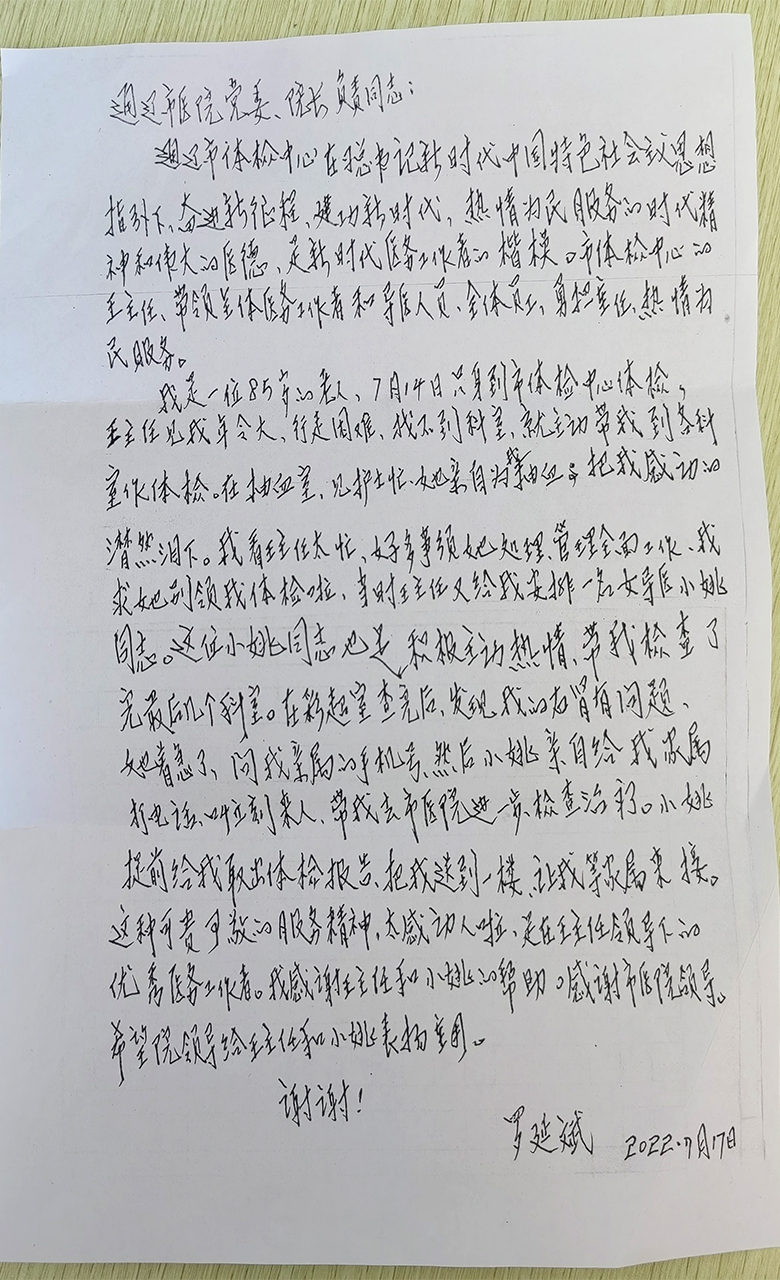 通辽市医院党委、院长负责同志：
通辽市体检中心在习总书记新时代中国特色社会主义思想
指引下、奋进新征程、建功新时代，热情为民服务的时代精
神和伟大的医德，是新时代医务工作者的楷模。市体检中心的
王主任、带领全体医务工作者和导医人员、全体员工，勇担重任，热情为
民服务。
我是一位85岁的老人、7月14日只身到市体检中心体检，
王主任见我年令大、行走困难、找不到科室，就主动带我到各科
室作体检。在抽血室，见护士忙、她亲自为我抽血，把我感动的
潸然泪下。我看王主任太忙、好多事须她处理、管理全面工作、我
求她别领我体检啦，当时王主任又给我安排一名女导医小姚
同志。这位小姚同志也是积极主动热情、带我检查了
完最后几个科室。在彩超室查完后、发现我的右肾有问题、
她着急了、问我亲属的手机号、然后小姚亲自给我家属
打电话、叫立刻来人、带我去市医院进一步检查治疗。小姚
提前给我取出体检报告、把我送到一楼、让我等家属来接。
这种可贵可敬的服务精神，太感动人啦，是在王主任领导下的
优秀医务工作者。我感谢王主任和小姚的帮助。感谢市医院领导。
希望院领导给王主任和小姚表扬重用。
谢谢！
罗延斌 2022.7月17日